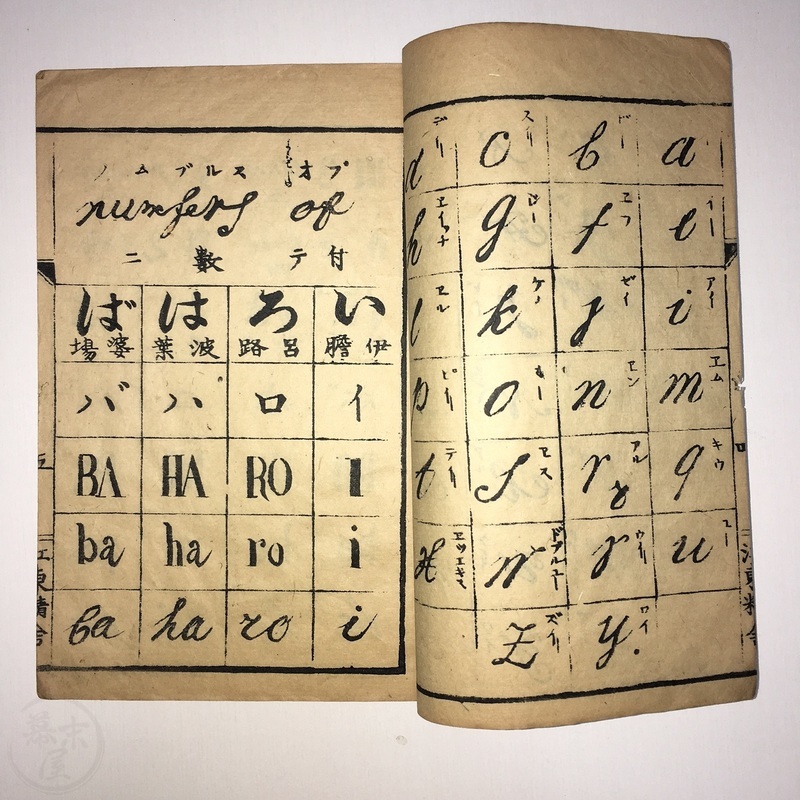 a b c d
ビー スリ デリ
e f g h
イー ヱフ ヂー ヱイッチ
i j k l
アイ ゼイ ケー ヱル
m n o p
ヱム ヱン オー ピリ
q r s t
キウ アル ヱス テリ
u v w x
ユー ウイリ ドブルユー ヱツエキス
y. z
ワイ ズイリ
ノムブルス オプ
numbers of
付テ數ニ
い ろ は ば
伊膽 呂路 波葉 婆場
イ ロ ハ バ
I RO HA BA
i ro ha ba
i ro ha ba
江東精舎